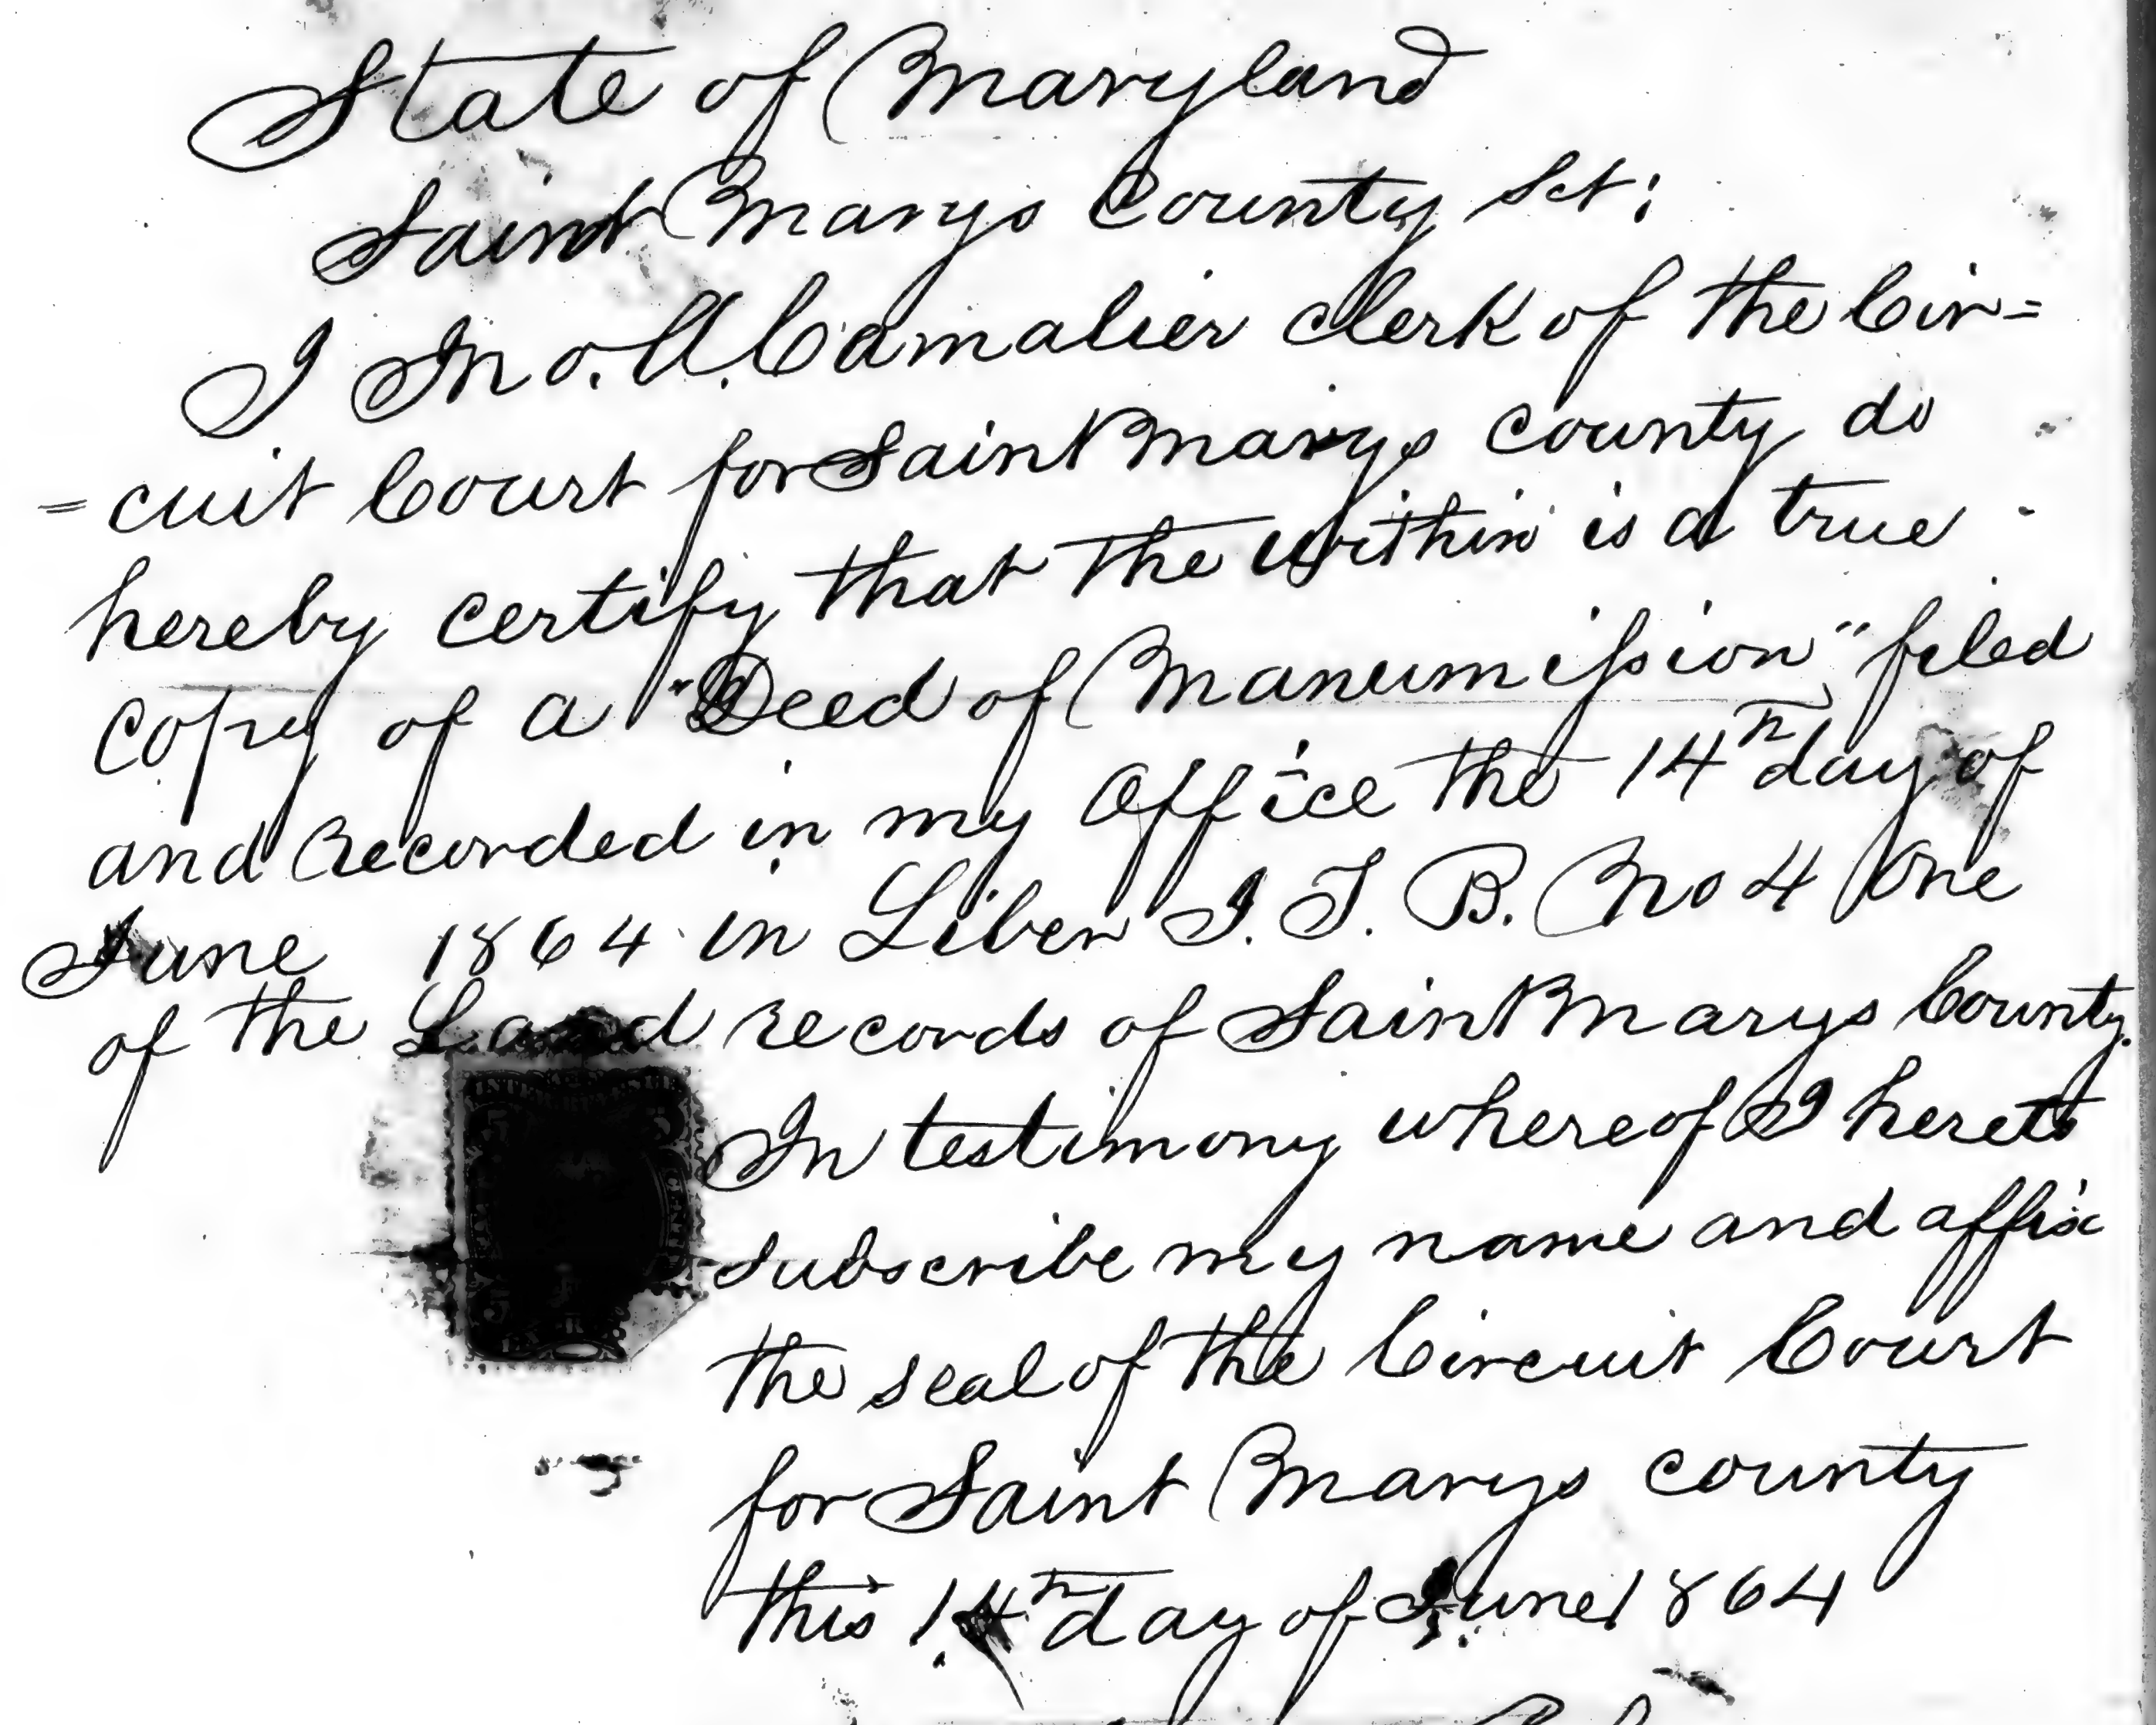 State of Maryland
Saint Marys County Sct:
I Jno. A. Camalier clerk of the Cir=
=cuit Court for Saint Marys County do
hereby certify that the within is a true
copy of a "Deed of Manumission" filed
and Recorded in my Office the 14th day of
June 1864 in Liber J. T. B. No 4 One
of the Land Records of Saint Marys County.
In testimony whereof I hereto
subscribe my name and affix
the seal of the Circuit Court
for Saint Marys county
this 14th day of June 1864